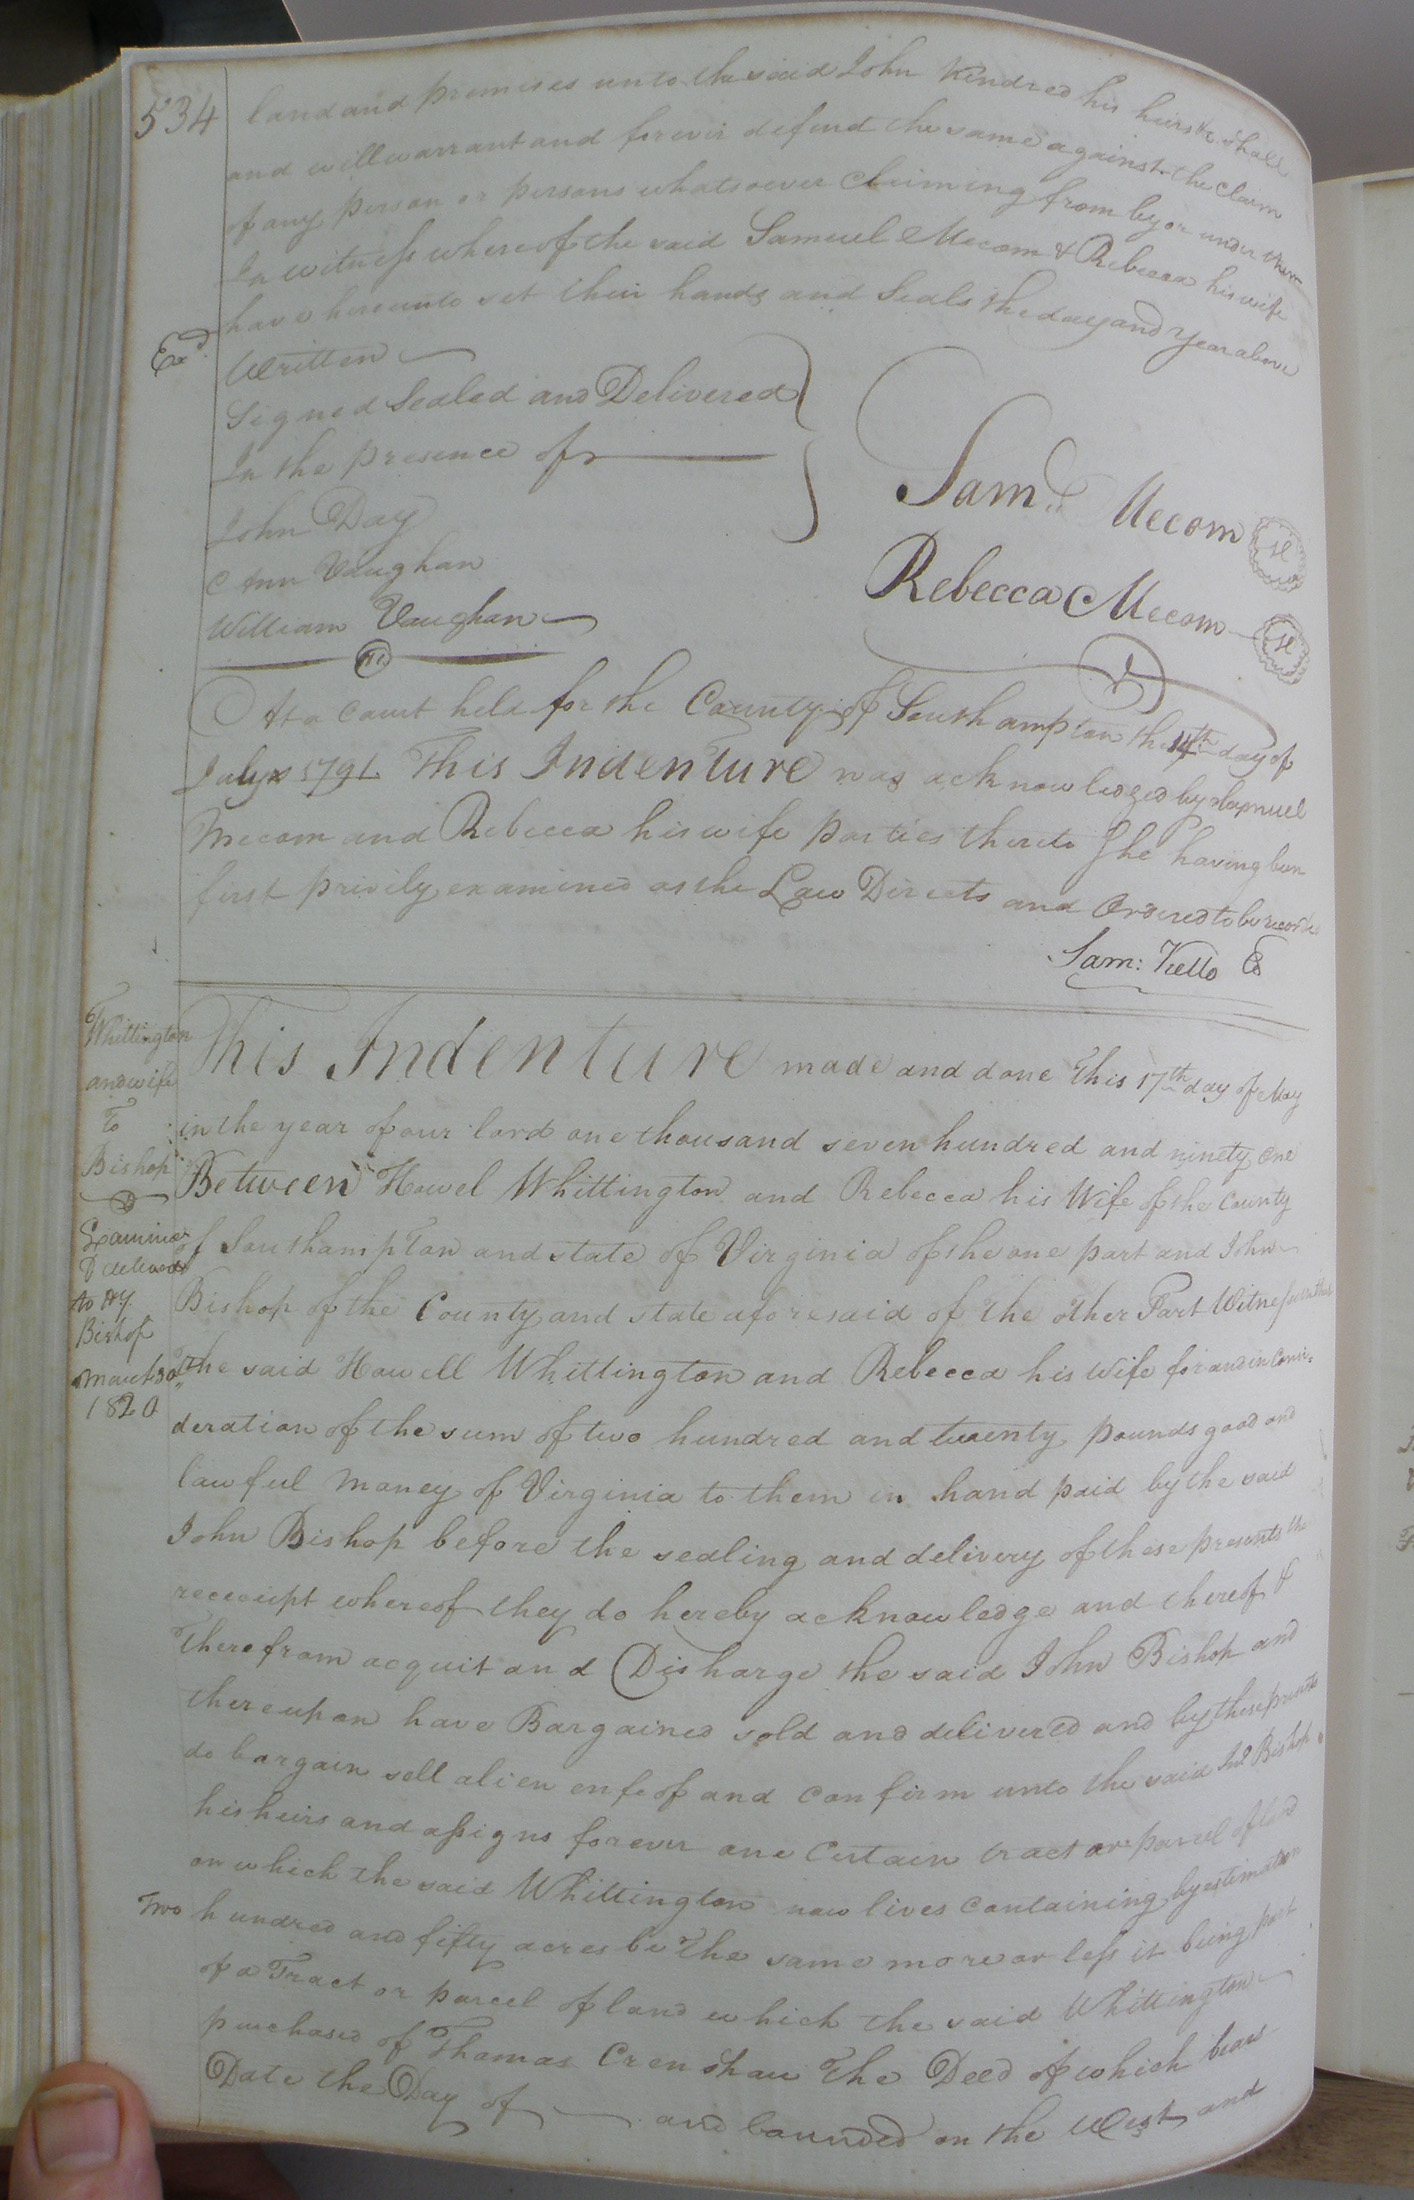 534
land and premises unto the said John Kindred his heirs &c shall
and will warrant and forever defend the same against the claim
of any person or persons whatsoever Claiming from by or under them
In witness whereof the said Samuel Mecom & Rebecca his wife
have hereunto set their hands and Seals the day and Year above
Exd.
Written
Signed Sealed and Delivered
In the presence of
John Day
Ann Vaughan
William Vaughan
Saml. Mecom
Rebecca Mecom
At a Court held for the County of Southampton the 14th day of
July 1791 This Indenture was acknowledged by Samuel
Mecom and Rebecca his wife parties thereto She having been
first privily examined as the Law Directs and Ordered to be recorded
Sam: Kello
Whittington
and wife
To
Bishop
Examined
& delivered
to Hy.
Bishop
March 30
1820
This Indenture made and done This 17th day of May
in the year of our lord one thousand seven hundred and ninety one
Between Howel Whittington and Rebecca his Wife of the County
of Southampton and state of Virginia of the one part and John
Bishop of the County and state aforesaid of the other Part Witnesseth that
the said Howell Whittington and Rebecca his wife for and in Consi-
deration of the sum of two hundred and twenty pounds good and
lawful money of Virginia to them in hand paid by the said
John Bishop before the sealing and delivery of these presents the
receeipt whereof they do hereby acknowledge and thereof &
Therefrom acquit and Disharge the said John Bishop and
thereupon have Bargained sold and delivered and by these presents
do bargain sell alien enfeof and Confirm unto the said Jno Bishop
his heirs and assigns forever one Certain tract or parcel of land
on which the said Whittington now lives Containing by estimation
Two hundred and fifty acres be the same more or less it being part
of a Tract or parcel of land which the said Whittington
purchased of Thomas Crenshaw The Deed of which bears
Date the Day of and bounded on the West and